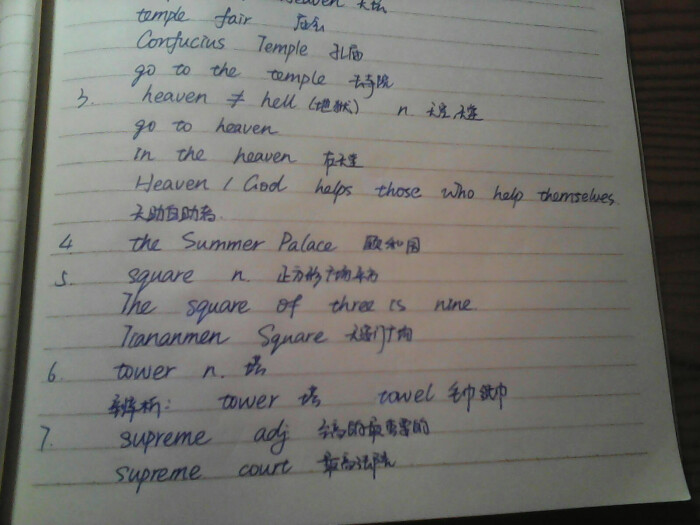 heaven 天坛
temple fair 庙会
Confucius Temple 孔庙
go to the temple 去寺院
3. heaven ≠ hell (地狱) n. 天空,天堂
go to heaven
in the heaven 在天堂
Heaven / God helps those who help themselves.
天助自助者.
4 the Summer Palace 颐和园
5. square n. 正方形 广场 平方
The square of three is nine.
Tiananmen Square 天安门广场
6. tower n. 塔
辨析: tower 塔 towel 毛巾 纸巾
7. supreme adj 至高的 最重要的
supreme court 最高法院